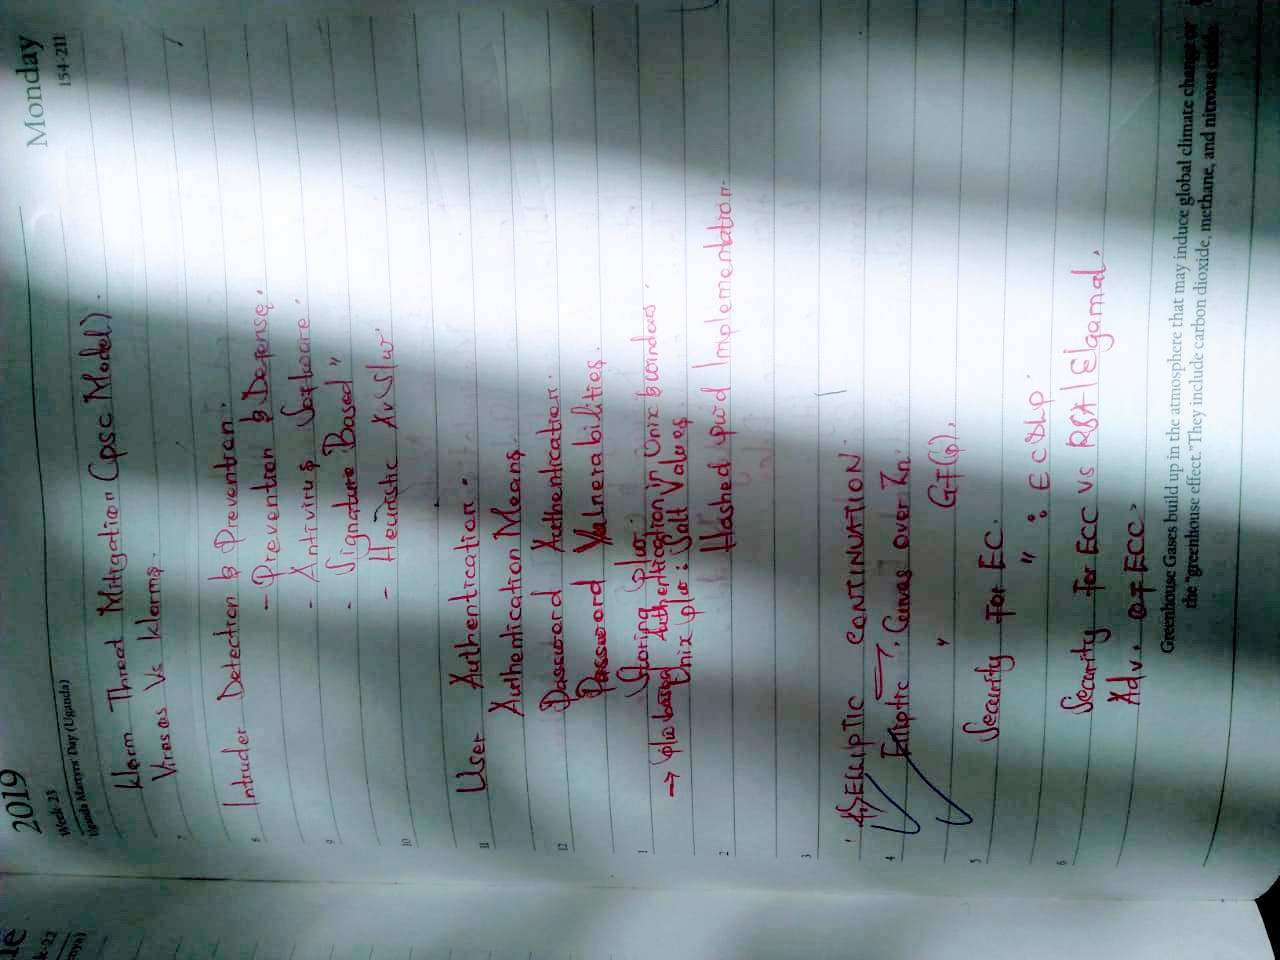 2019
Monday
Week-23
154-211
Uganda Martyrs' Day (Uganda)
Worm Threat Mitigation (psc Model).
Viruses Vs Worms.
7
Intruder Detection & Prevention.
8
- Prevention & Defense.
- Antivirus Software.
9
- Signature Based "
- Heuristic Av S/w
10
User Authentication.
11
Authentication Means.
Password Authentication.
12
Password Vulnerabilities.
Storing p/w.
1
→ p/w based Authentication in Unix & windows.
Unix p/w: Salt Values
2
Hashed pwd Implementation.
3
ELLIPTIC CONTINUATION.
4
Elliptic Curves over Zn.
" GF(q).
5
Security For EC.
" : ECDLP.
6
Security For ECC vs RSA/Elgamal.
Adv. of ECC.
Greenhouse Gases build up in the atmosphere that may induce global climate change or
the "greenhouse effect." They include carbon dioxide, methane, and nitrous oxide.